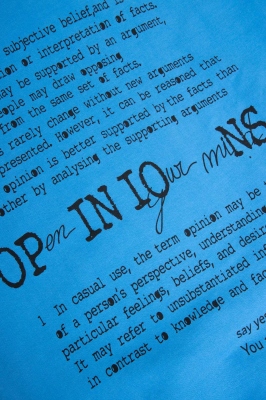 subjective belief, and i
ion or interpretation of facts.
may be supported by an argument,
ople may draw opposing
from the same set of facts.
s rarely change without new arguments
presented. However, it can be reasoned that
opinion is better supported by the facts than
other by analysing the supporting arguments
OPen IN IOur miNS
1 In casual use, the term opinion may be
of a person's perspective, understanding
particular feelings, beliefs, and desir
It may refer to unsubstantiated in
in contrast to knowledge and fac
say ye
You